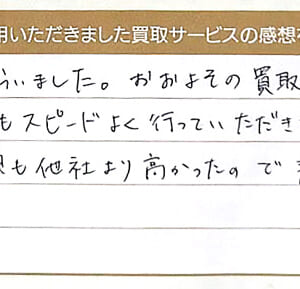 用いただきました買取サービスの感想
らいました。おおよその買取
もスピードよく行っていただき
も他社より高かったので